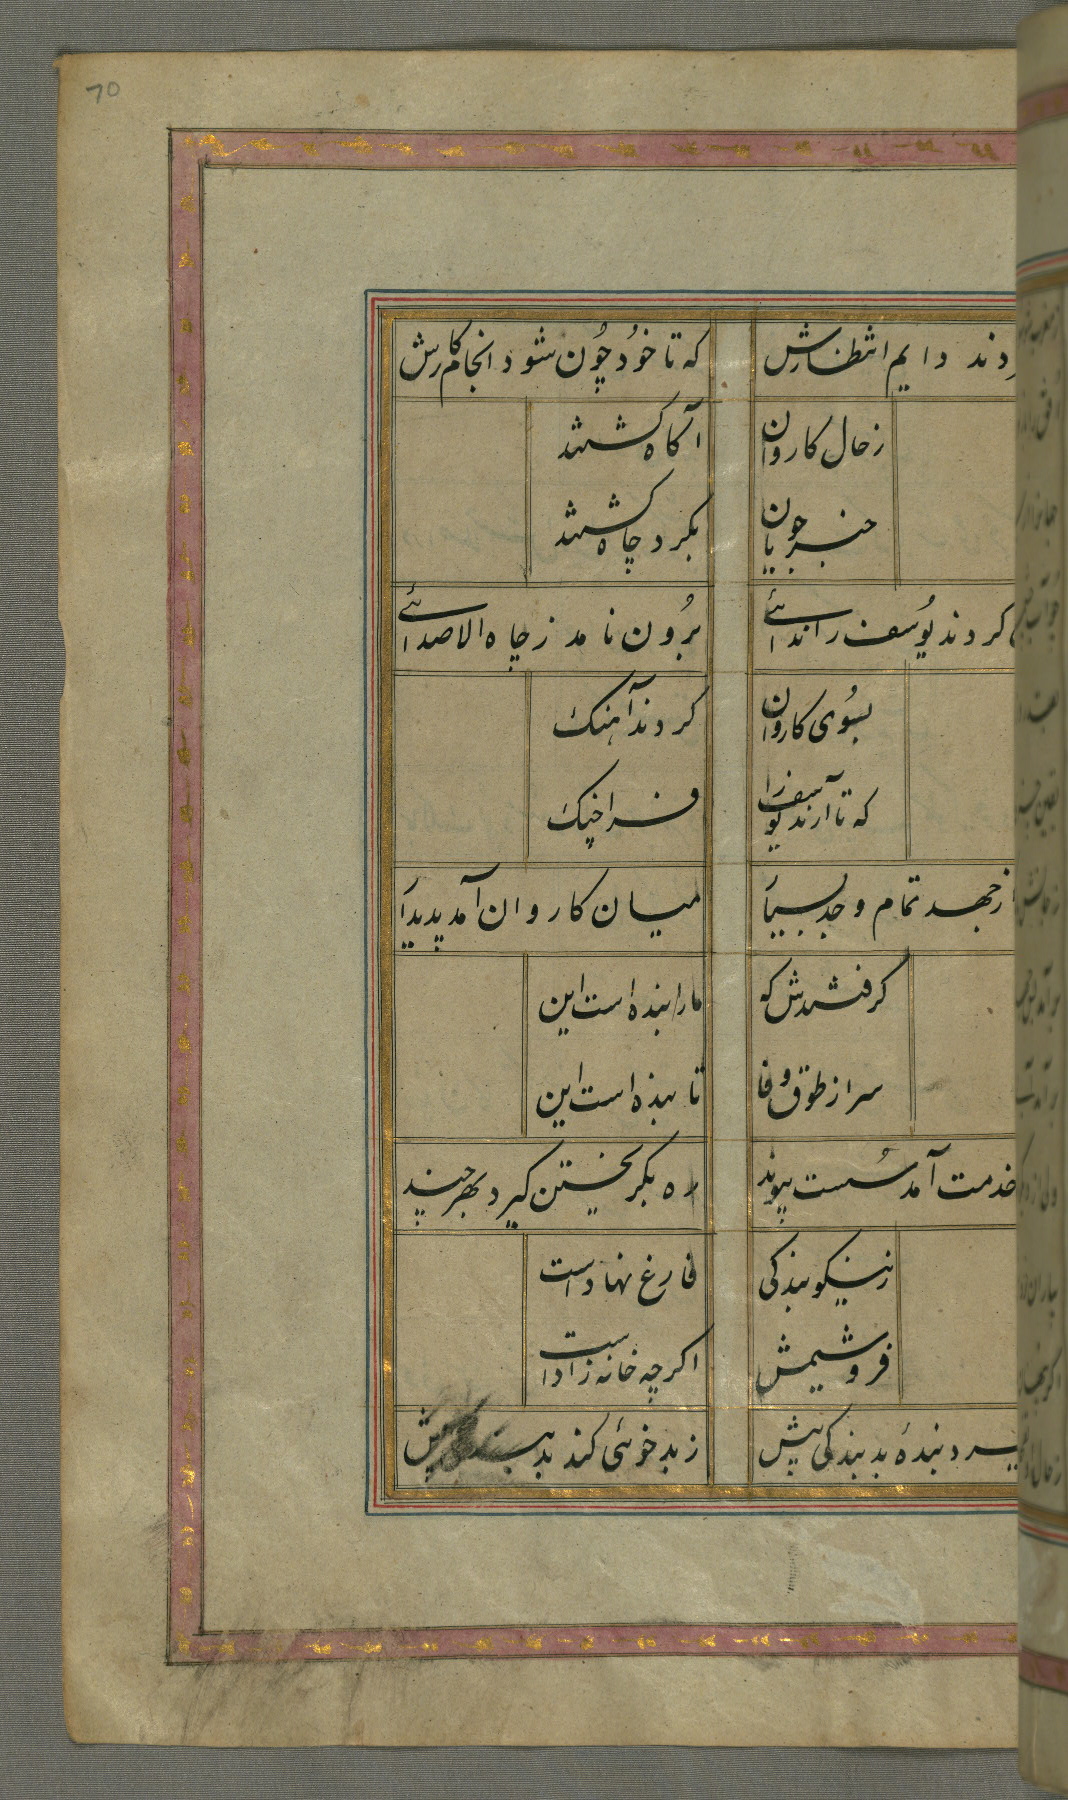 70
دند دایم انتظارش که تا خود چون شود انجام کارش
زحال کاروان آکاه کشتند
خبر جویان بکرد چاه کشتند
کردند یوسف را ندائے برون نامد ز چاه الا صدائے
بسوی کاروان کردند آهنک
که تا آرند یوسف را فرا چنک
از جهد تمام و جد بسیار میان کاروان آمد پدیدار
کرفتندش که مارا بنده است این
سر از طوق وفا تابنده است این
خدمت آمد سست پیوند ره بکریختن کیرد بهر چند
زنیکو بندکی فارغ نهاد است
فروشیمش اکرچه خانه زاد است
بندهٔ بد بندکی پیش زبد خوئی کند بد